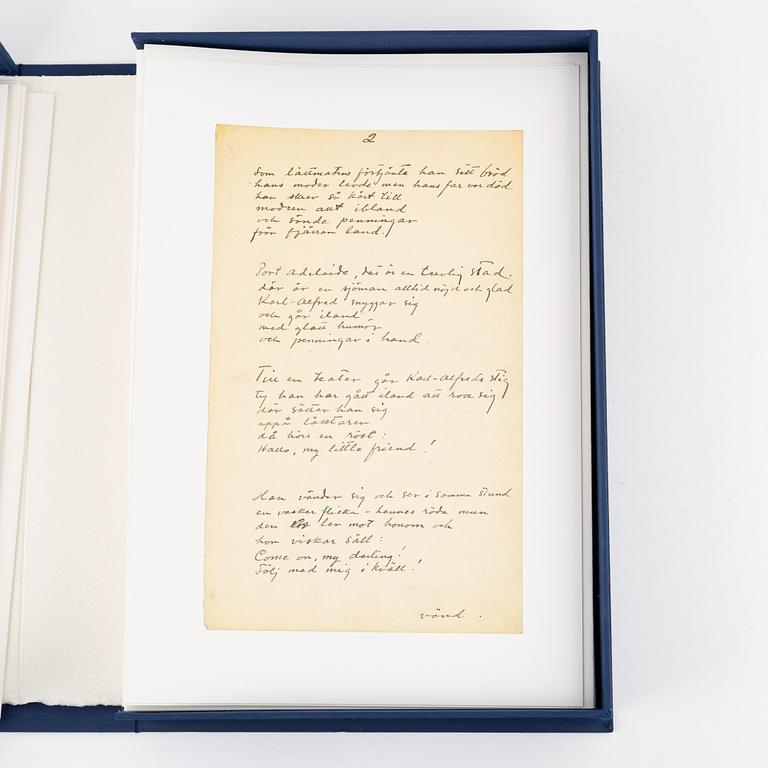 2
Som lättmatros förtjänte han sitt bröd
hans moder levde men hans far var död
han skrev så kärt till
modren att ibland
och sände penningar
från fjärran land.
Port Adelaide, det är en trevlig stad.
där är en sjöman alltid nöjd och glad
Karl-Alfred snyggar sig
och går iland
med glatt humör
och penningar i hand.
Till en teater går Karl-Alfreds stig
ty han har gått iland att roa sig
där sätter han sig
uppå läktaren
då hörs en röst:
Hallo, my little friend!
Han vänder sig och ser i samma stund
en vacker flicka - hennes röda mun
den ler mot honom och
hon viskar säll:
Come on, my darling!
Följ med mig i kväll!
vänd.